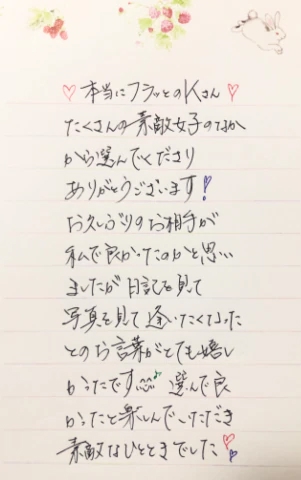 ♡本当にフラッとのKさん♡
たくさんの素敵女子のなか
から選んでくださり
ありがとうございます!
お久しぶりのお相手が
私で良かったのかと思い
ましたが日記を見て
写真を見て逢いたくなった
とのお言葉がとても嬉し
かったです 選んで良
かったと楽しんでいただき
素敵なひとときでした♡♡